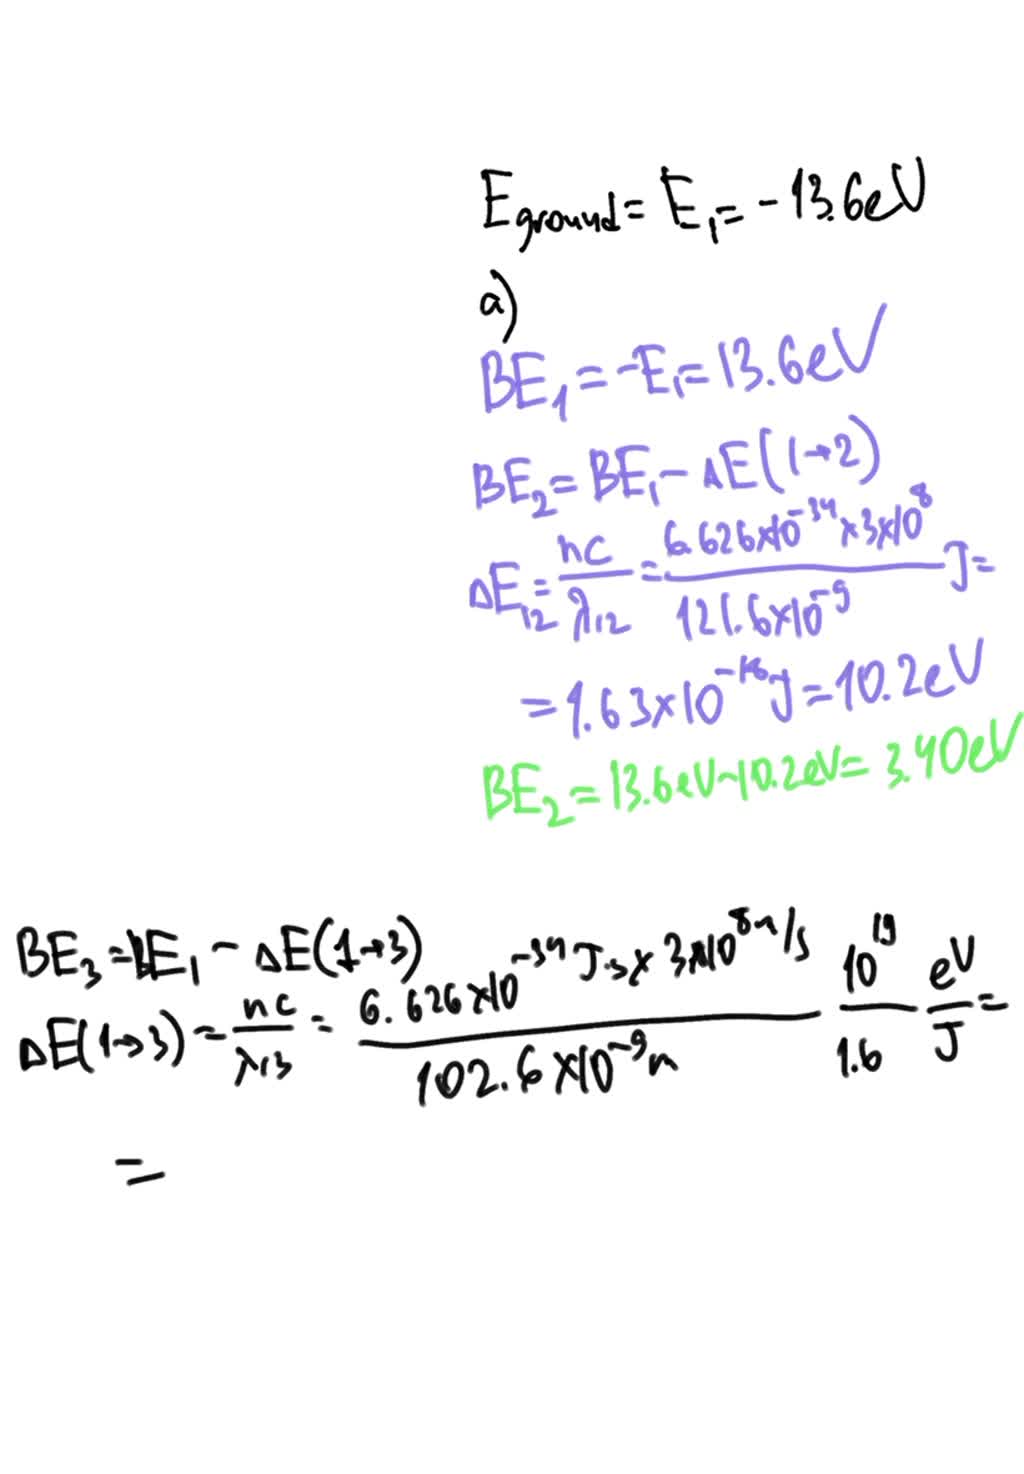 E_ground = E_1 = -13.6eV
a)
BE_1 = -E_1 = 13.6eV
BE_2 = BE_1 - ΔE(1→2)
ΔE_12 = hc/λ_12 = (6.626×10^-34 × 3×10^8)/(121.6×10^-9) J =
= 1.63×10^-18 J = 10.2eV
BE_2 = 13.6eV - 10.2eV = 3.40eV
BE_3 = BE_1 - ΔE(1→3)
ΔE(1→3) = hc/λ_13 = (6.626×10^-34 J.s × 3×10^8 m/s)/(102.6×10^-9 m) 10^19/1.6 eV/J =
=